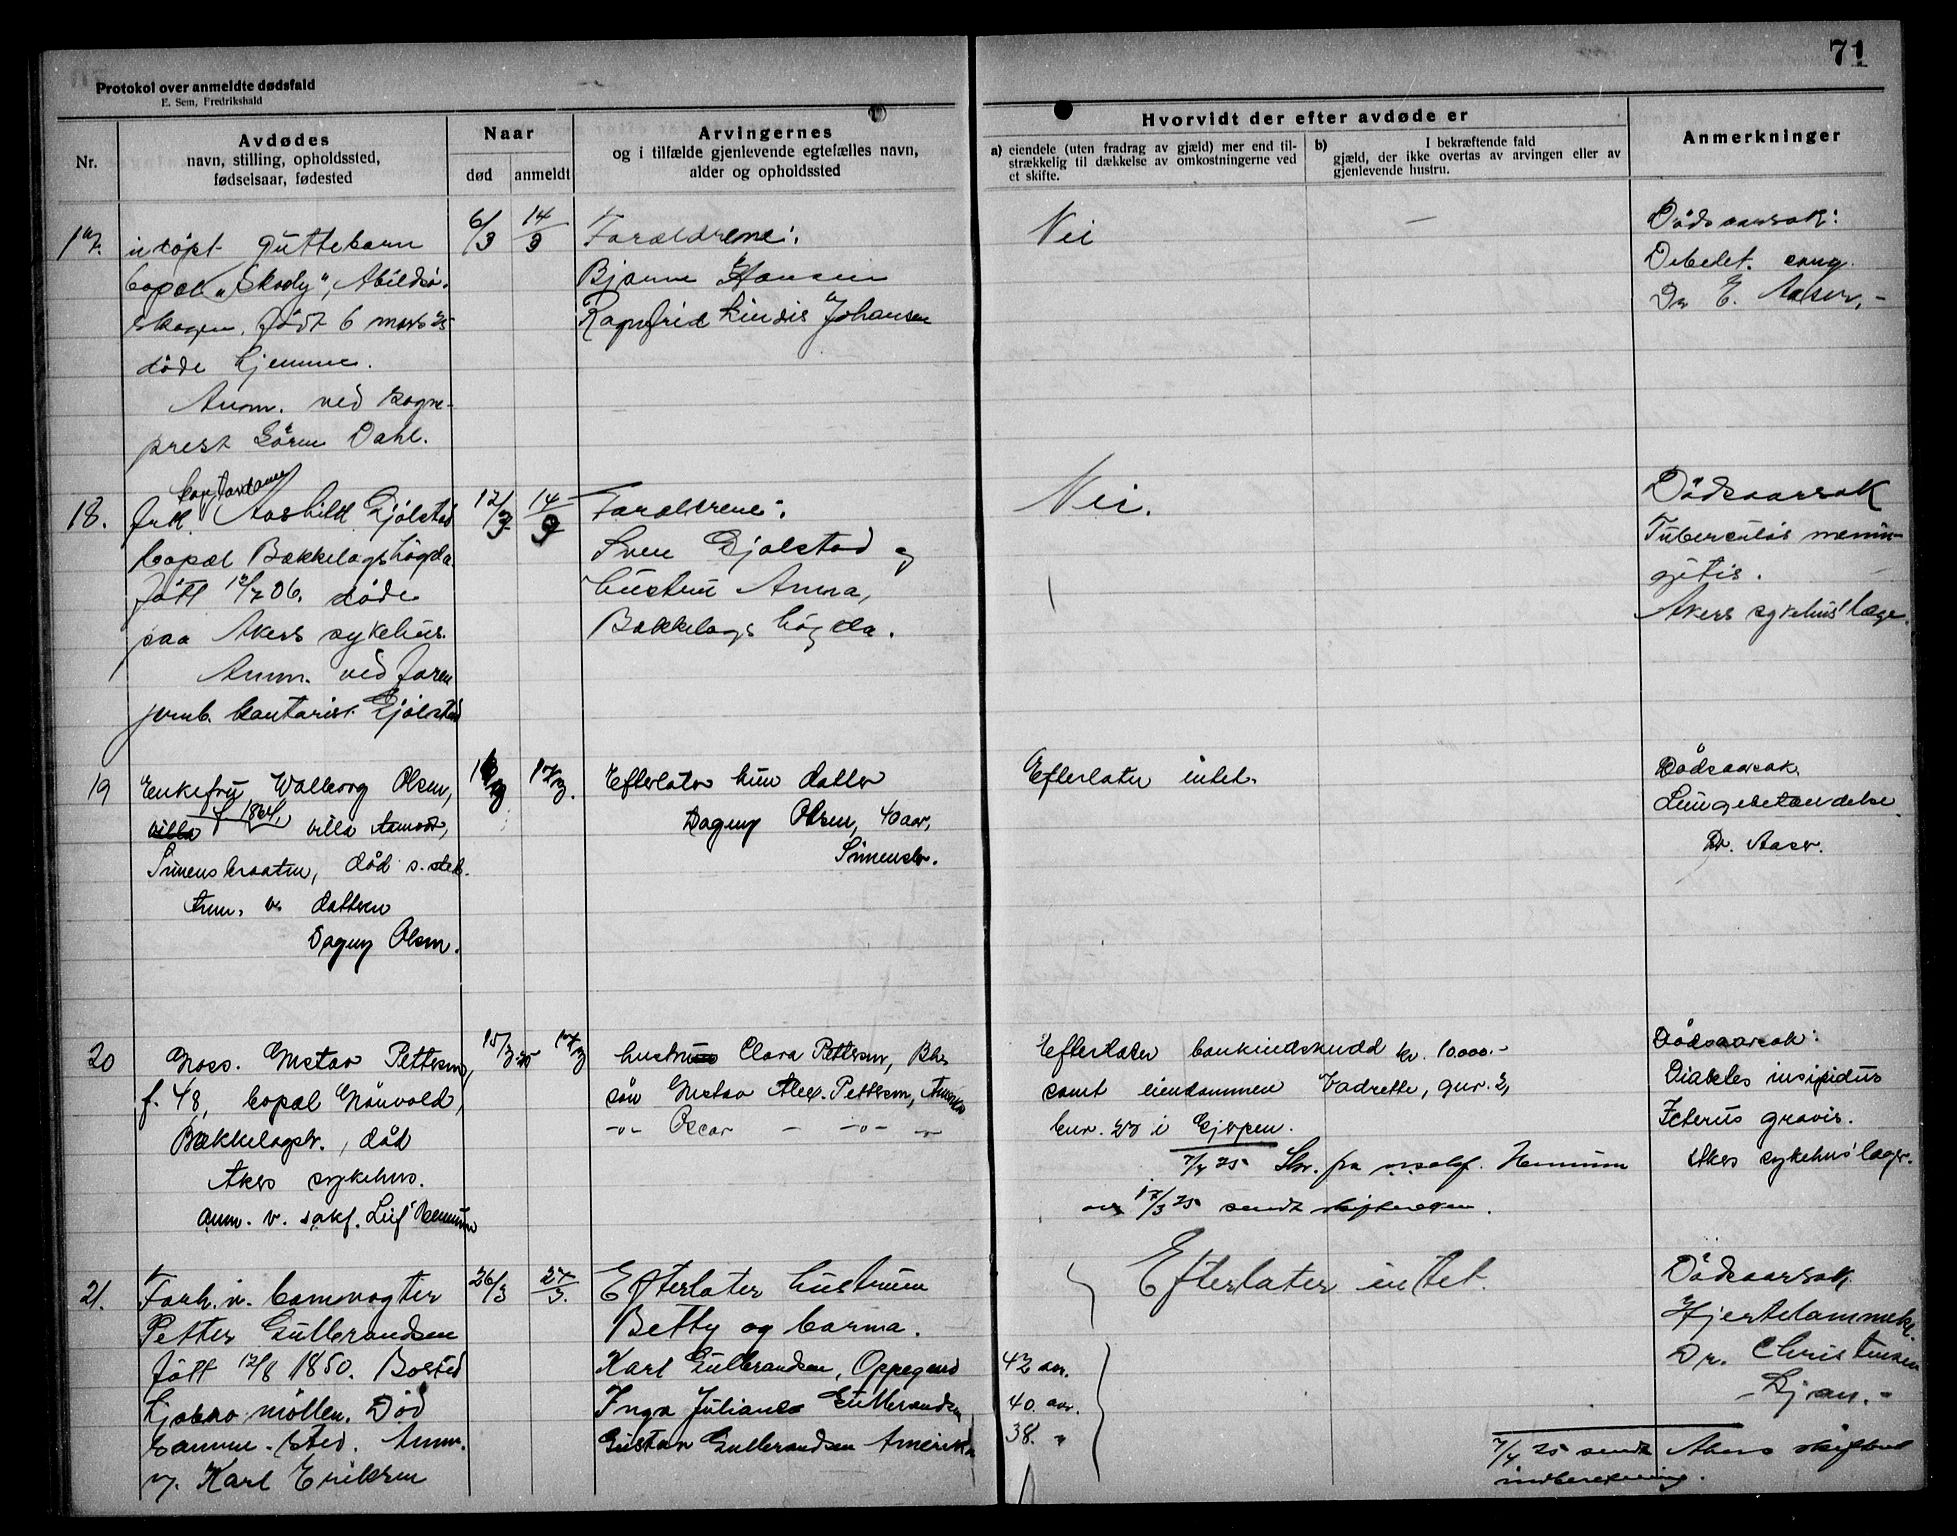 71
Protokol over anmeldte dødsfald
E. Sem, Fredrikshald
Nr.
Avdødes
navn, stilling, opholdssted,
fødselsaar, fødested
Naar
død
anmeldt
Arvingernes
og i tilfælde gjenlevende egtefælles navn,
alder og opholdssted
Hvorvidt der efter avdøde er
a) eiendele (uten fradrag av gjæld) mer end til-
strækkelig til dækkelse av omkostningerne ved
et skifte.
b) I bekræftende fald
gjæld, der ikke overtas av arvingen eller av
gjenlevende hustru.
Anmerkninger
17.
udöpt guttebarn
bopæl "Skody", Abildsö-
skogen, født 6 mars 25
döde hjemme.
Anm. ved sogne-
prest Sören Dahl.
6/3
14/3
Forældrene:
Bjarne Hansen
Ragnfrid Lindis Johansen
Nei
—
Dödsaarsak:
Debilit. cong.
Dr E. Aaser. -
18.
frk. Aashild Gjölstad
bopæl Bækkelagshögda
född 12/7 06. döde
paa Akers sykehus.
Anm. ved faren
jernb. kontorist Gjölstad
12/3
14/3
Forældrene:
Sven Gjölstad og
hustru Anna,
Bækkelagshögda.
Nei.
Dödsaarsak
Tuberculös menin-
gitis.
Akers sykehus' læge.
19
Enkefru Walborg Olsen,
f. 1864,
villa villa Aamodt,
Simensbraaten, död s. sted.
Anm. v. datteren
Dagny Olsen.
17/3.
Efterlater hun datter
Dagny Olsen, 40 aar,
Simensbr.
Efterlater intet.
Dödsaarsak.
Lungebetændelse
Dr. Aaser.
20
Gross. Gustav Pettersen,
f. 48, bopæl Grönvold,
Bækkelagsbr., död
Akers sykehus.
anm. v. sakf. Leif Hemmum
15/3 25
17/3
hustru Clara Pettersen, Bkl.
sön Gustav Alex. Pettersen, Amerika
-o- Oscar - -o- -o-
Efterlater bankindskudd kr. 10000.-
samt eiendommen Vadrette, gnr. 2,
bnr. 27 i Gjerpen.
7/4 25 Skr. fra o.r.sakf. Hemmum
av 17/3 25 sendt skifteretten.
Dödsaarsak:
Diabetes insipidus
Icterus gravis.
Akers sykehus' læger.
21.
Forh. v. banevogter
Petter Gulbrandsen
född 12/8 1850. Bosted
Ljabro möllen. Död
samme sted. Anm.
v. Karl Eriksen
26/3
27/3.
Efterlater hustruen
Betty og barna.
Karl Gulbrandsen, Oppegaard 42 aar.
Inga Juliane Gulbrandsen 40. aar.
Gustav Gulbrandsen Amerika 38. "
Efterlater intet.
Dödsaarsak.
Hjertelammelse.
Dr. Christensen
Ljan. -
7/4 25 sendt Akers skifteret
indberetning.